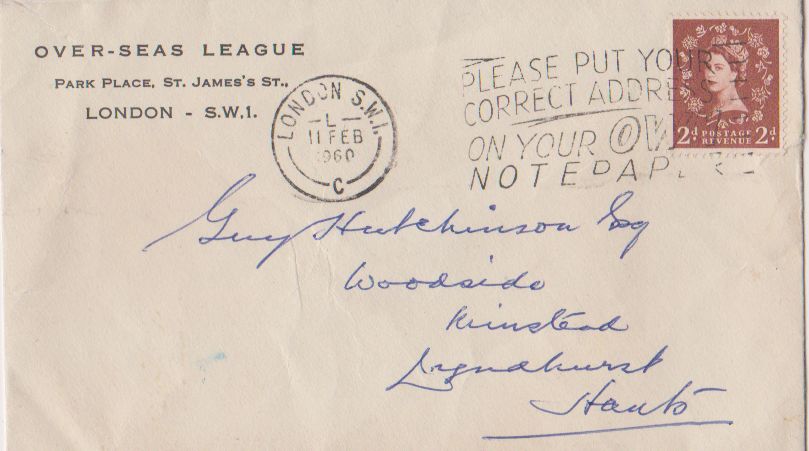 OVER-SEAS LEAGUE
PARK PLACE, ST. JAMES'S ST.,
LONDON - S.W.1.
LONDON S.W.1.
-L-
11 FEB
1960
C
PLEASE PUT YOUR
CORRECT ADDRESS
ON YOUR OWN
NOTEPAPER
2d POSTAGE REVENUE 2d
Guy Hutchinson Esq
Woodside
Minstead
Lyndhurst
Hants